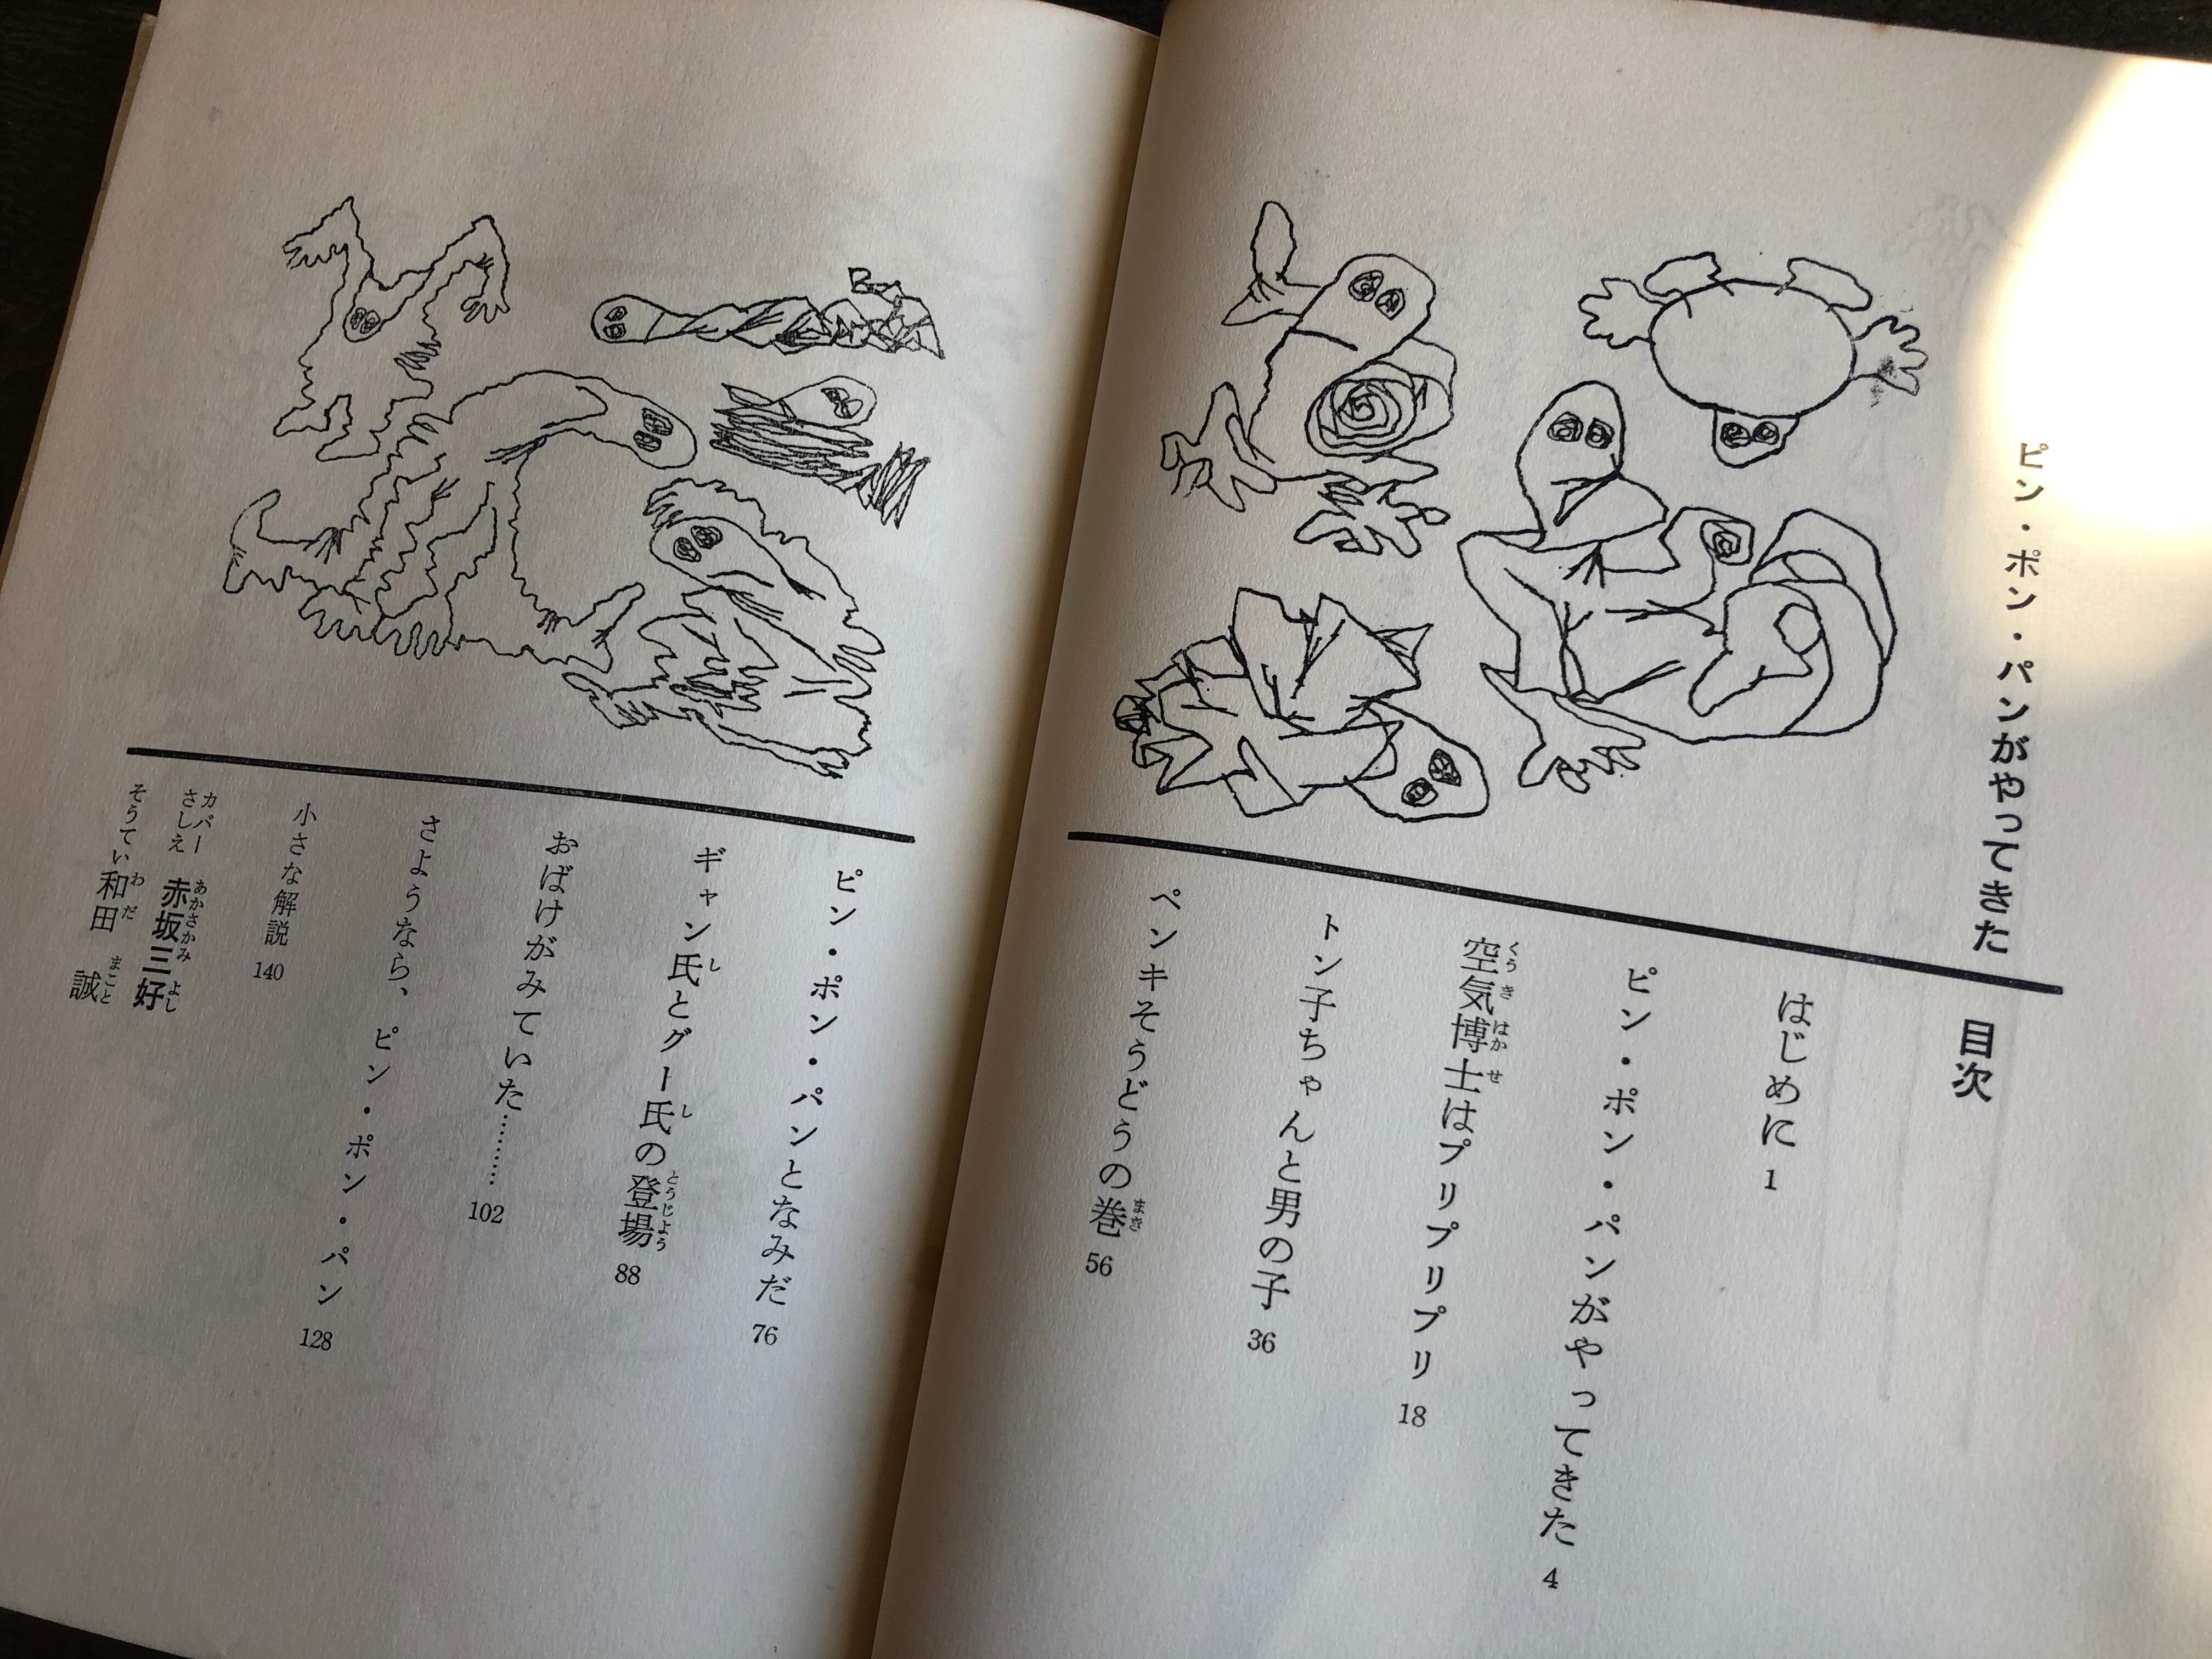 ピン・ポン・パンがやってきた
目次
はじめに 1
ピン・ポン・パンがやってきた 4
空気博士はプリプリプリ 18
トン子ちゃんと男の子 36
ペンキそうどうの巻 56
ピン・ポン・パンとなみだ 76
ギャン氏とグー氏の登場 88
おばけがみていた……… 102
さようなら、ピン・ポン・パン 128
小さな解説 140
カバー
さしえ 赤坂三好
そうてい 和田 誠